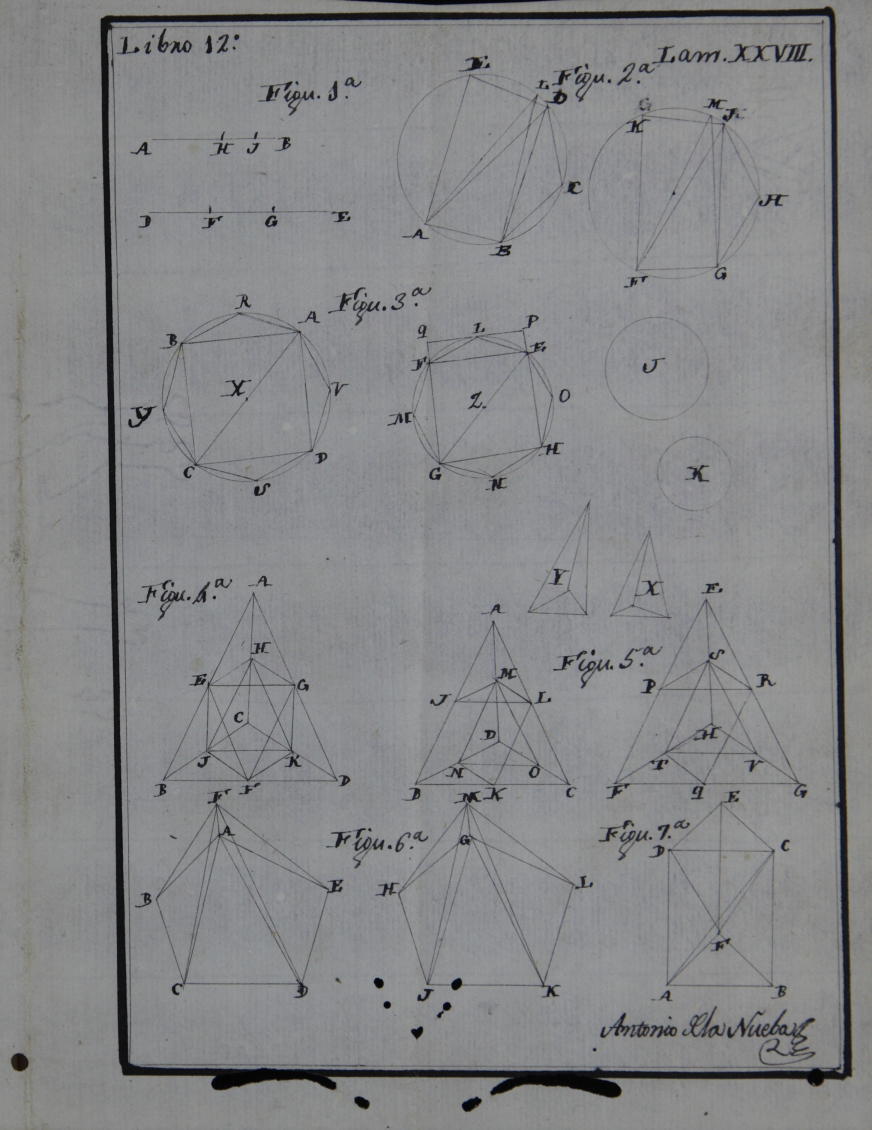 Libro 12:
Lam. XXVIII.
Figu. 1.ª
A H J B
D F G E
Figu. 2.ª
E
L
D
C
A
B
G M
K
H
F G
Figu. 3.ª
R
B A
X
Y V
C D
S
q L P
F E
Z
M O
G H
N
J
K
Figu. 4.ª
A
H
E G
C
J K
B F D
Y X
Figu. 5.ª
A
M
J L
D
N O
B K C
E
S
P R
H
T V
F q G
Figu. 6.ª
F
A
B E
C D
M
G
H L
J K
Figu. 7.ª
E
D C
F
A B
Antonio Nueba